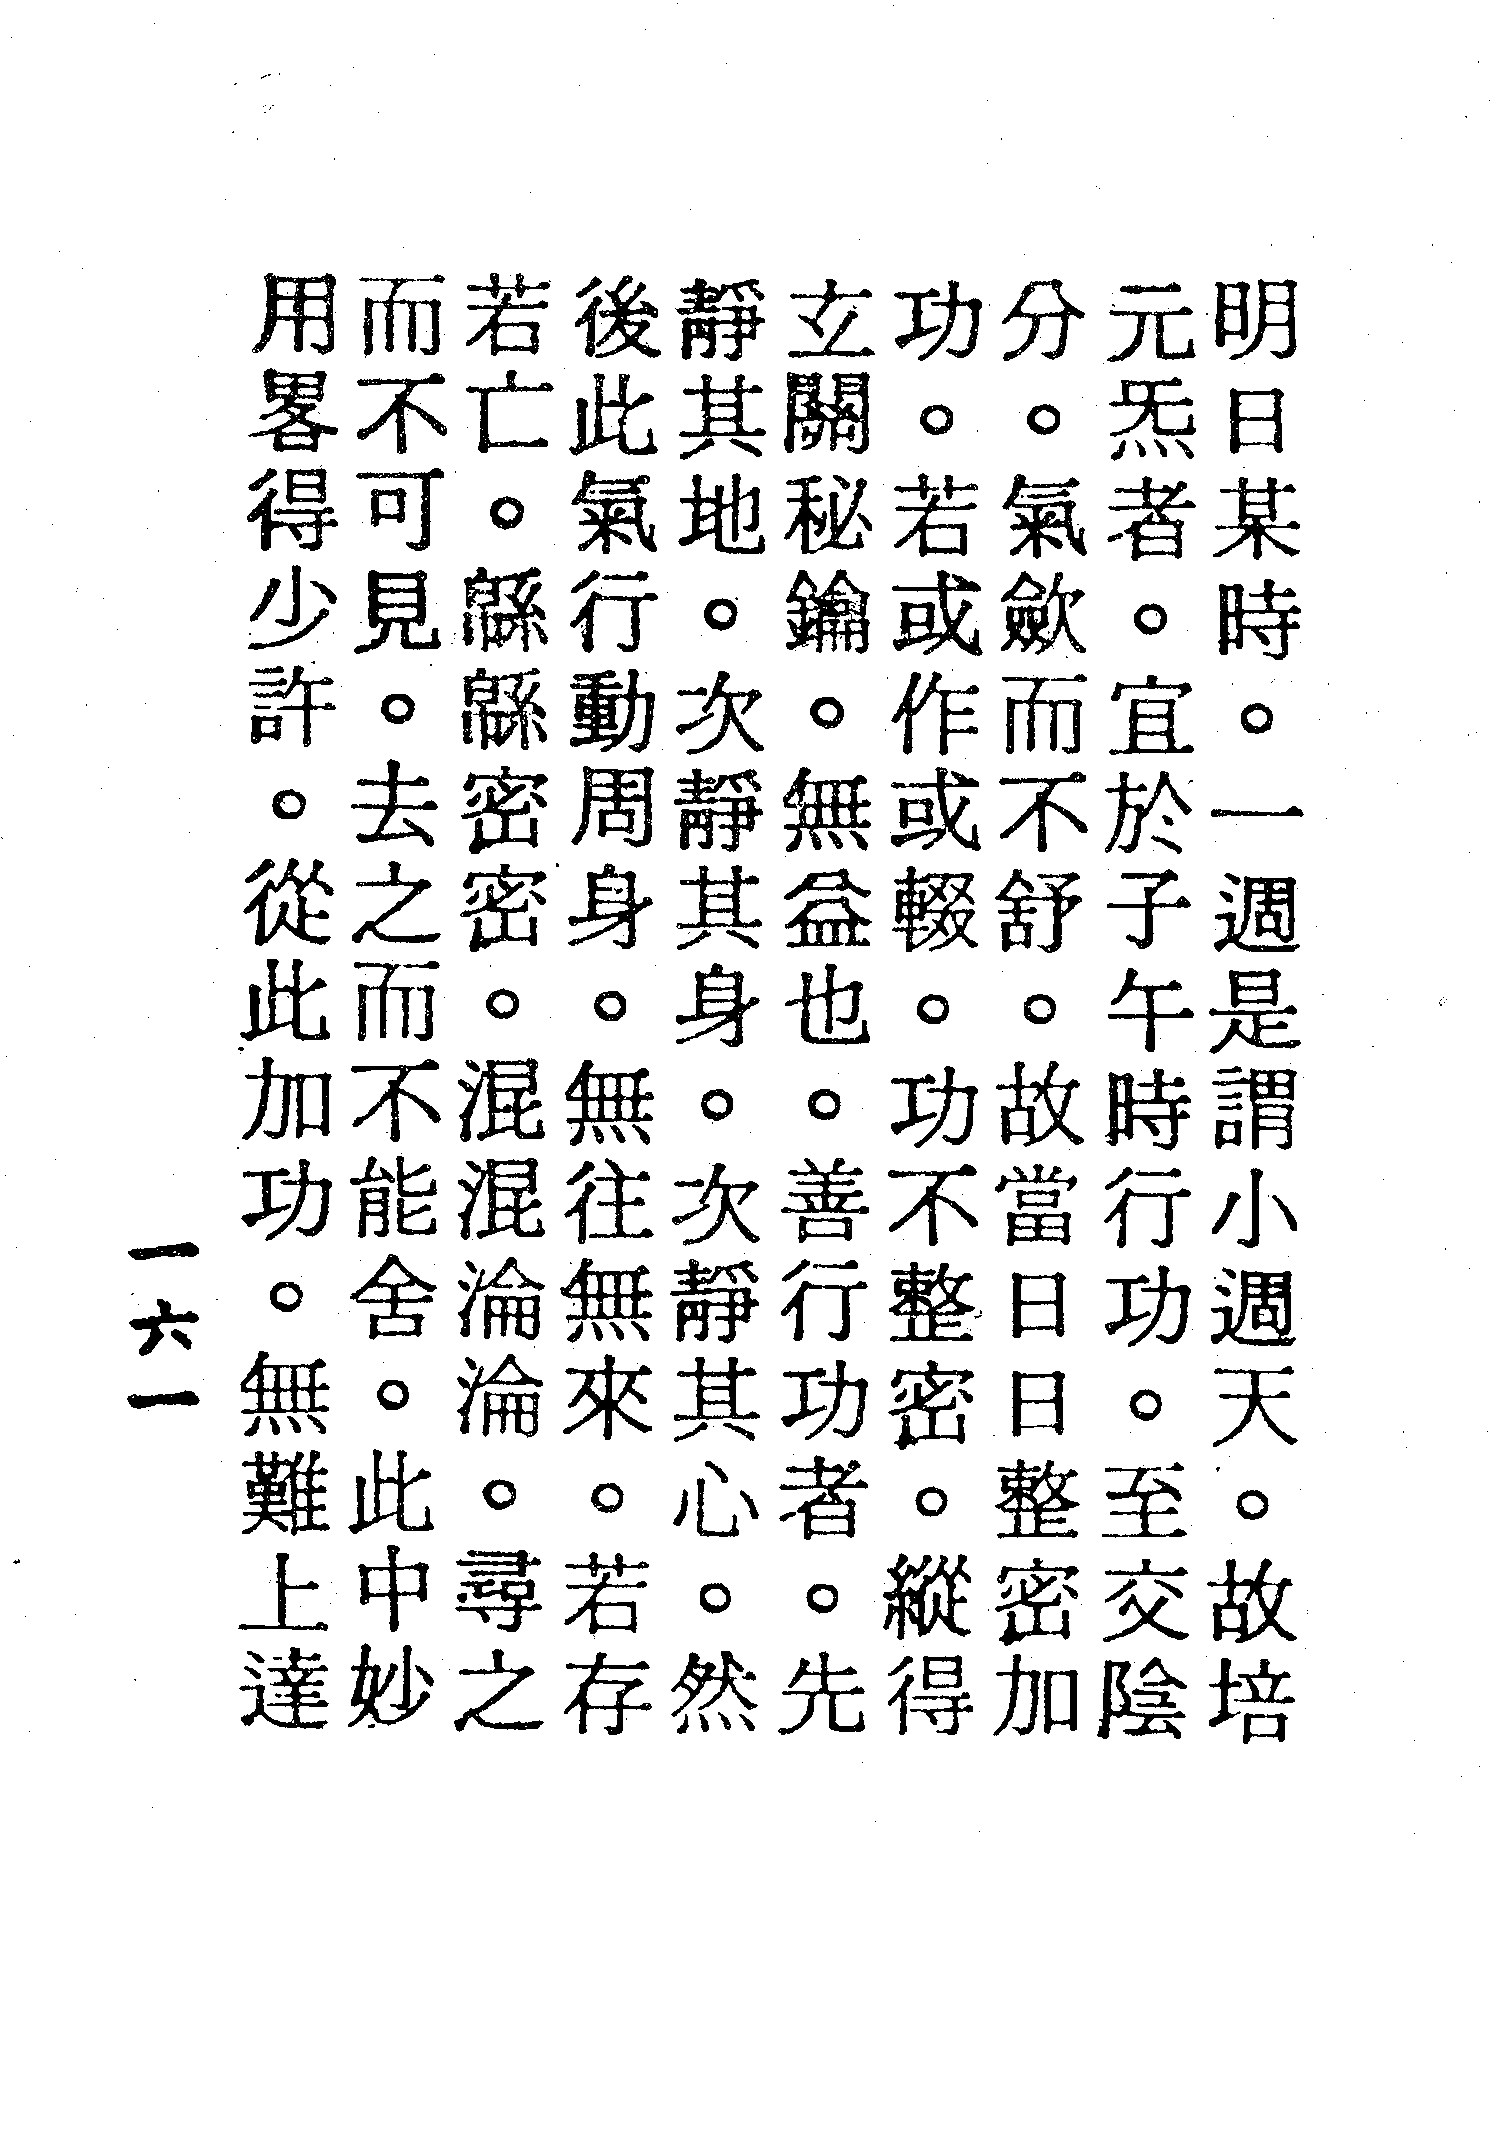 明日某時。一週是謂小週天。故培
元炁者。宜於子午時行功。至交陰
分。氣歛而不舒。故當日日整密加
功。若或作或輟。功不整密。縱得
玄關秘鑰。無益也。善行功者。先
靜其地。次靜其身。次靜其心。然
後此氣行動周身。無往無來。若存
若亡。緜緜密密。混混淪淪。尋之
而不可見。去之而不能舍。此中妙
用畧得少許。從此加功。無難上達
一六一